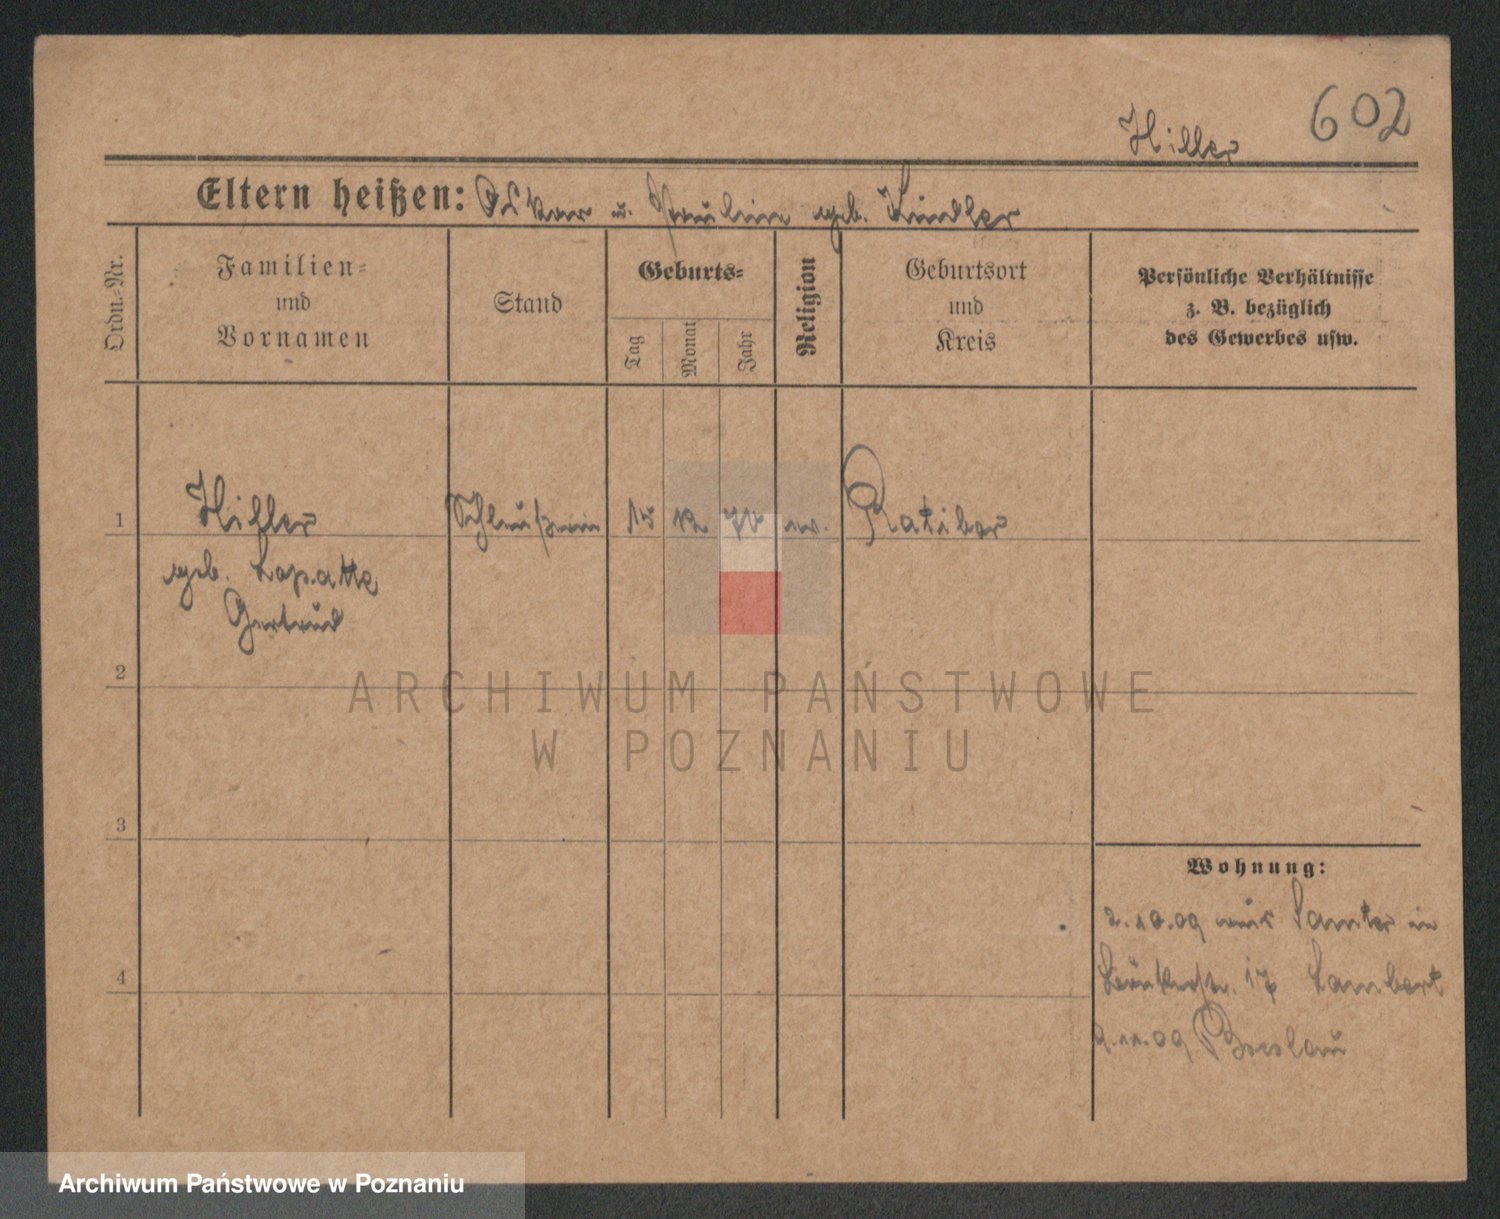 602
Hiller
Eltern heißen: Oskar u. Paulin geb. Kindler
Ordn.-Nr.
Familien-
und
Vornamen
Stand
Geburts-
Tag
Monat
Jahr
Religion
Geburtsort
und
Kreis
Persönliche Verhältnisse
z. B. bezüglich
des Gewerbes usw.
1
Hiller
geb. Lopatte
Gertrud
15 12 70 ev. Ratibor
2
ARCHIWUM PAŃSTWOWE
W POZNANIU
3
Wohnung:
2.10.09 aus Samter in
17 Lambert
4
9.11.09 Breslau
Archiwum Państwowe w Poznaniu